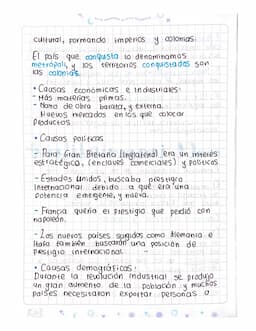 cultural, formando imperios y colonias.
El país que conquista lo denominamos
metrópoli, y los territorios conquistados son
las colonias.
• Causas económicas e industriales:
- Más materias primas.
- Mano de obra barata, y externa.
Nuevos mercados en los que colocar
Productos.
• Causas políticas
- Para Gran Bretaña (Inglaterra) era un interés
estratégico, (enclaves comerciales) y políticos
- Estados Unidos, buscaba prestigio
internacional debido a que era una
potencia emergente, y nueva.
- Francia quería el prestigio que perdió con
napoleón.
- Los nuevos países surgidos como Alemania e
Italia también buscaron una posición de
prestigio internacional.
• Causas demográficas:
Durante la revolución industrial se produjo
un gran aumento de la población y muchos
países necesitaron exportar personas a